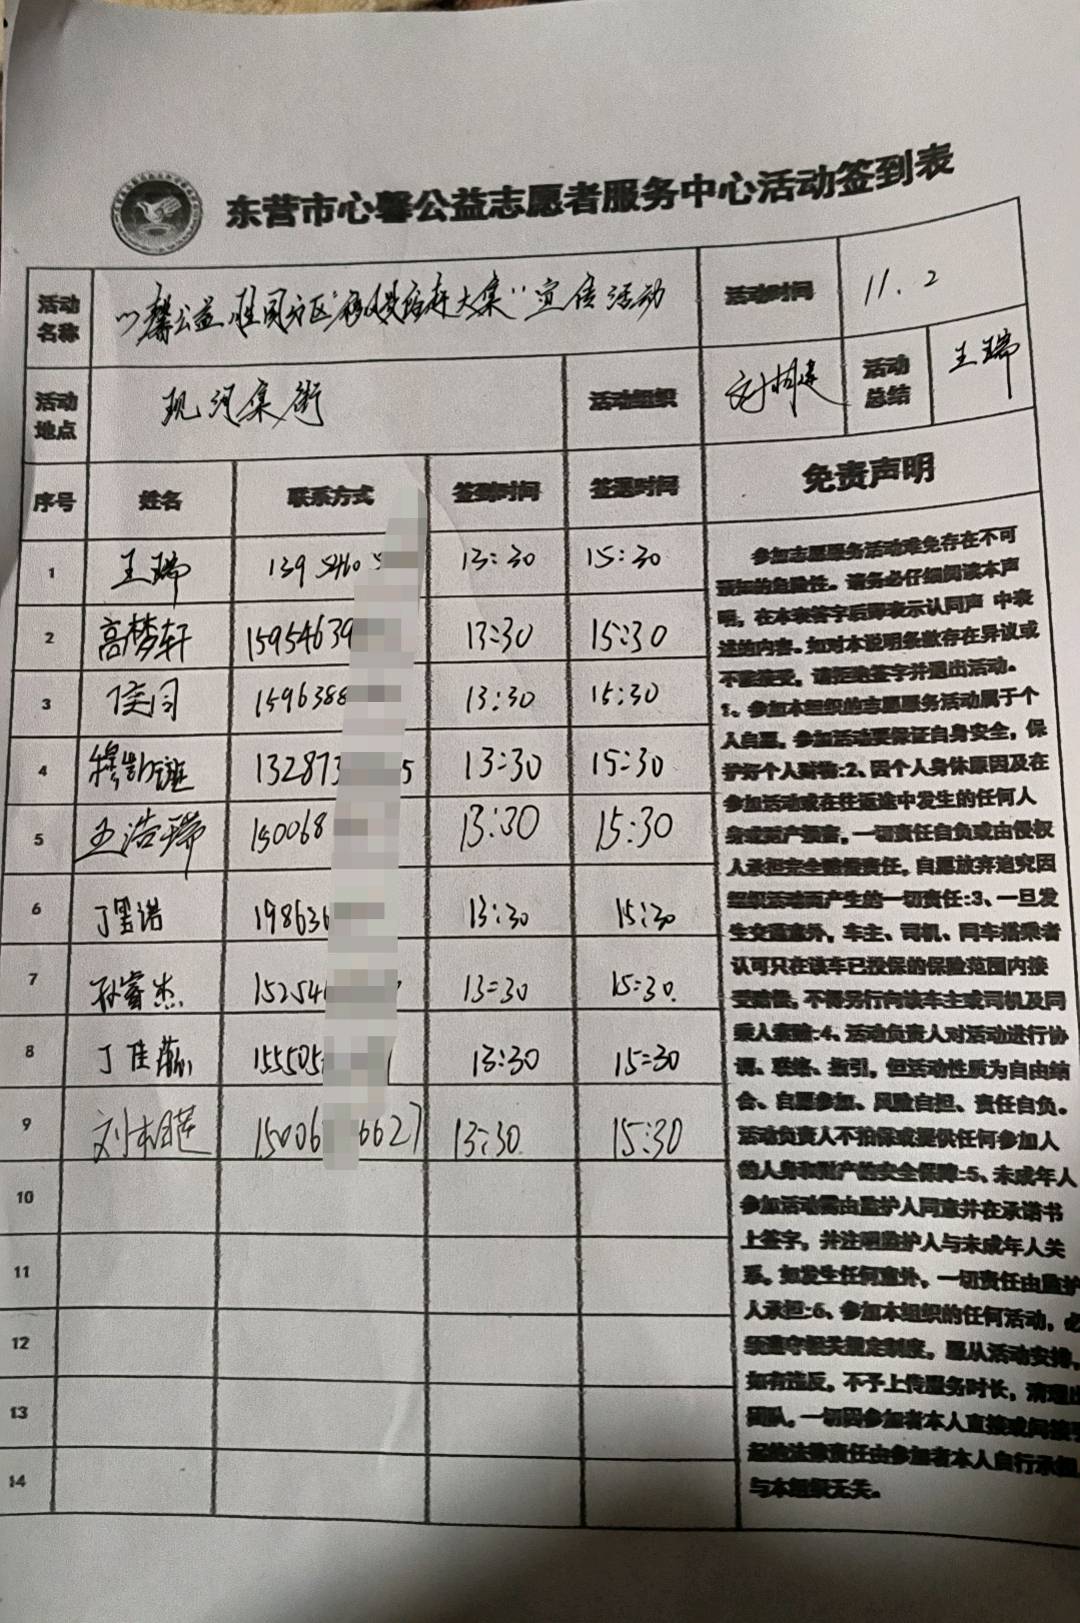 东营市心馨公益志愿者服务中心活动签到表
活动名称 馨公益 赶大集"宣传活动 活动时间 11.2
活动地点 现河集街 活动组织 刘相莲 活动总结 王瑞
序号 姓名 联系方式 签到时间 签退时间 免责声明
1 王瑞 139 5460 13:30 15:30
2 高梦轩 15954639 13:30 15:30
3 1596388 13:30 15:30
4 穆 132873 5 13:30 15:30
5 王浩瑞 150068 13:30 15:30
6 丁 诺 198636 13:30 15:30
7 孙睿杰 152546 13:30 15:30.
8 丁佳 155505 13:30 15:30
9 刘相莲 15006 6627 13:30. 15:30
10
11
12
13
14
参加志愿服务活动难免存在不可
预知的危险性。请务必仔细阅读本声
明，在本表签字后即表示认同声 中表
述的内容。如对本说明条款存在异议或
不能接受，请拒绝签字并退出活动。
1、参加本组织的志愿服务活动属于个
人自愿，参加活动要保证自身安全，保
护好个人财物:2、因个人身体原因及在
参加活动或在往返途中发生的任何人
身或财产损害，一切责任自负或由侵权
人承担完全赔偿责任，自愿放弃追究因
组织活动而产生的一切责任:3、一旦发
生交通意外，车主、司机、同车搭乘者
认可只在该车已投保的保险范围内接
受赔偿，不得另行向该车主或司机及同
乘人索赔:4、活动负责人对活动进行协
调、联络、指引，但活动性质为自由结
合、自愿参加、风险自担、责任自负。
活动负责人不担保或提供任何参加人
的人身和财产的安全保障:5、未成年人
参加活动需由监护人同意并在承诺书
上签字，并注明监护人与未成年人关
系。如发生任何意外，一切责任由监护
人承担:6、参加本组织的任何活动，必
须遵守相关规定制度，服从活动安排，
如有违反，不予上传服务时长，清理出
团队。一切因参加者本人直接或间接引
起的法律责任由参加者本人自行承担，
与本组织无关。